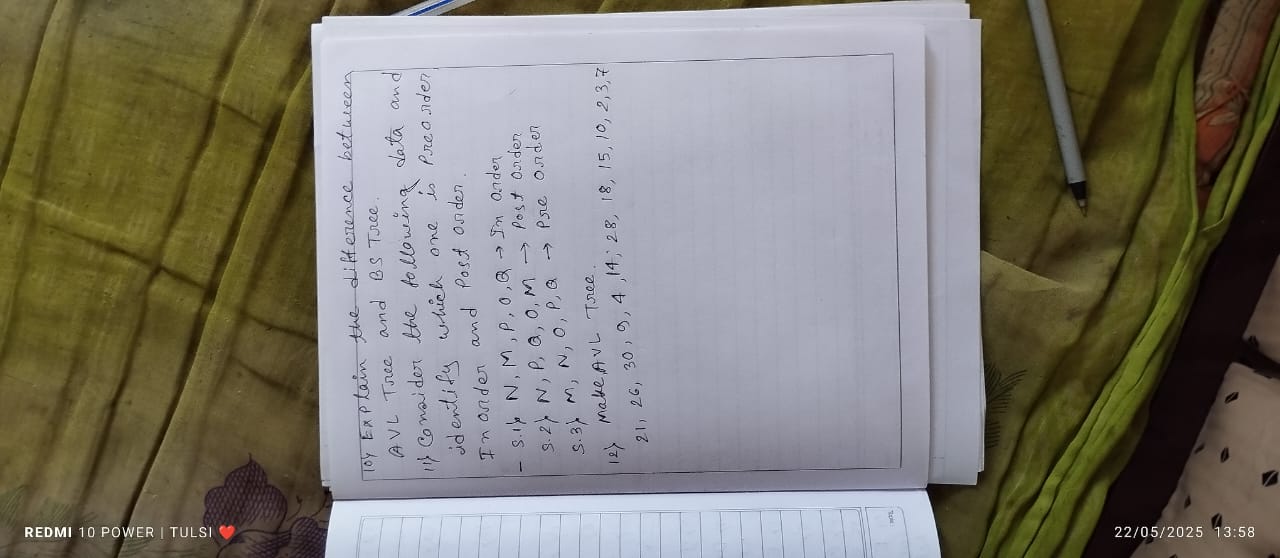 10) Explain the difference between
AVL Tree and BS Tree.
11) Consider the following data and
identify which one is Preorder
In order and Post order.
- S.1) N, M, P, O, Q → In Order
S.2) N, P, Q, O, M → Post Order
S.3) M, N, O, P, Q → Pre Order
12) Make AVL Tree.
21, 26, 30, 9, 4, 14, 28, 18, 15, 10, 2, 3, 7
REDMI 10 POWER | TULSI ❤
22/05/2025 13:58